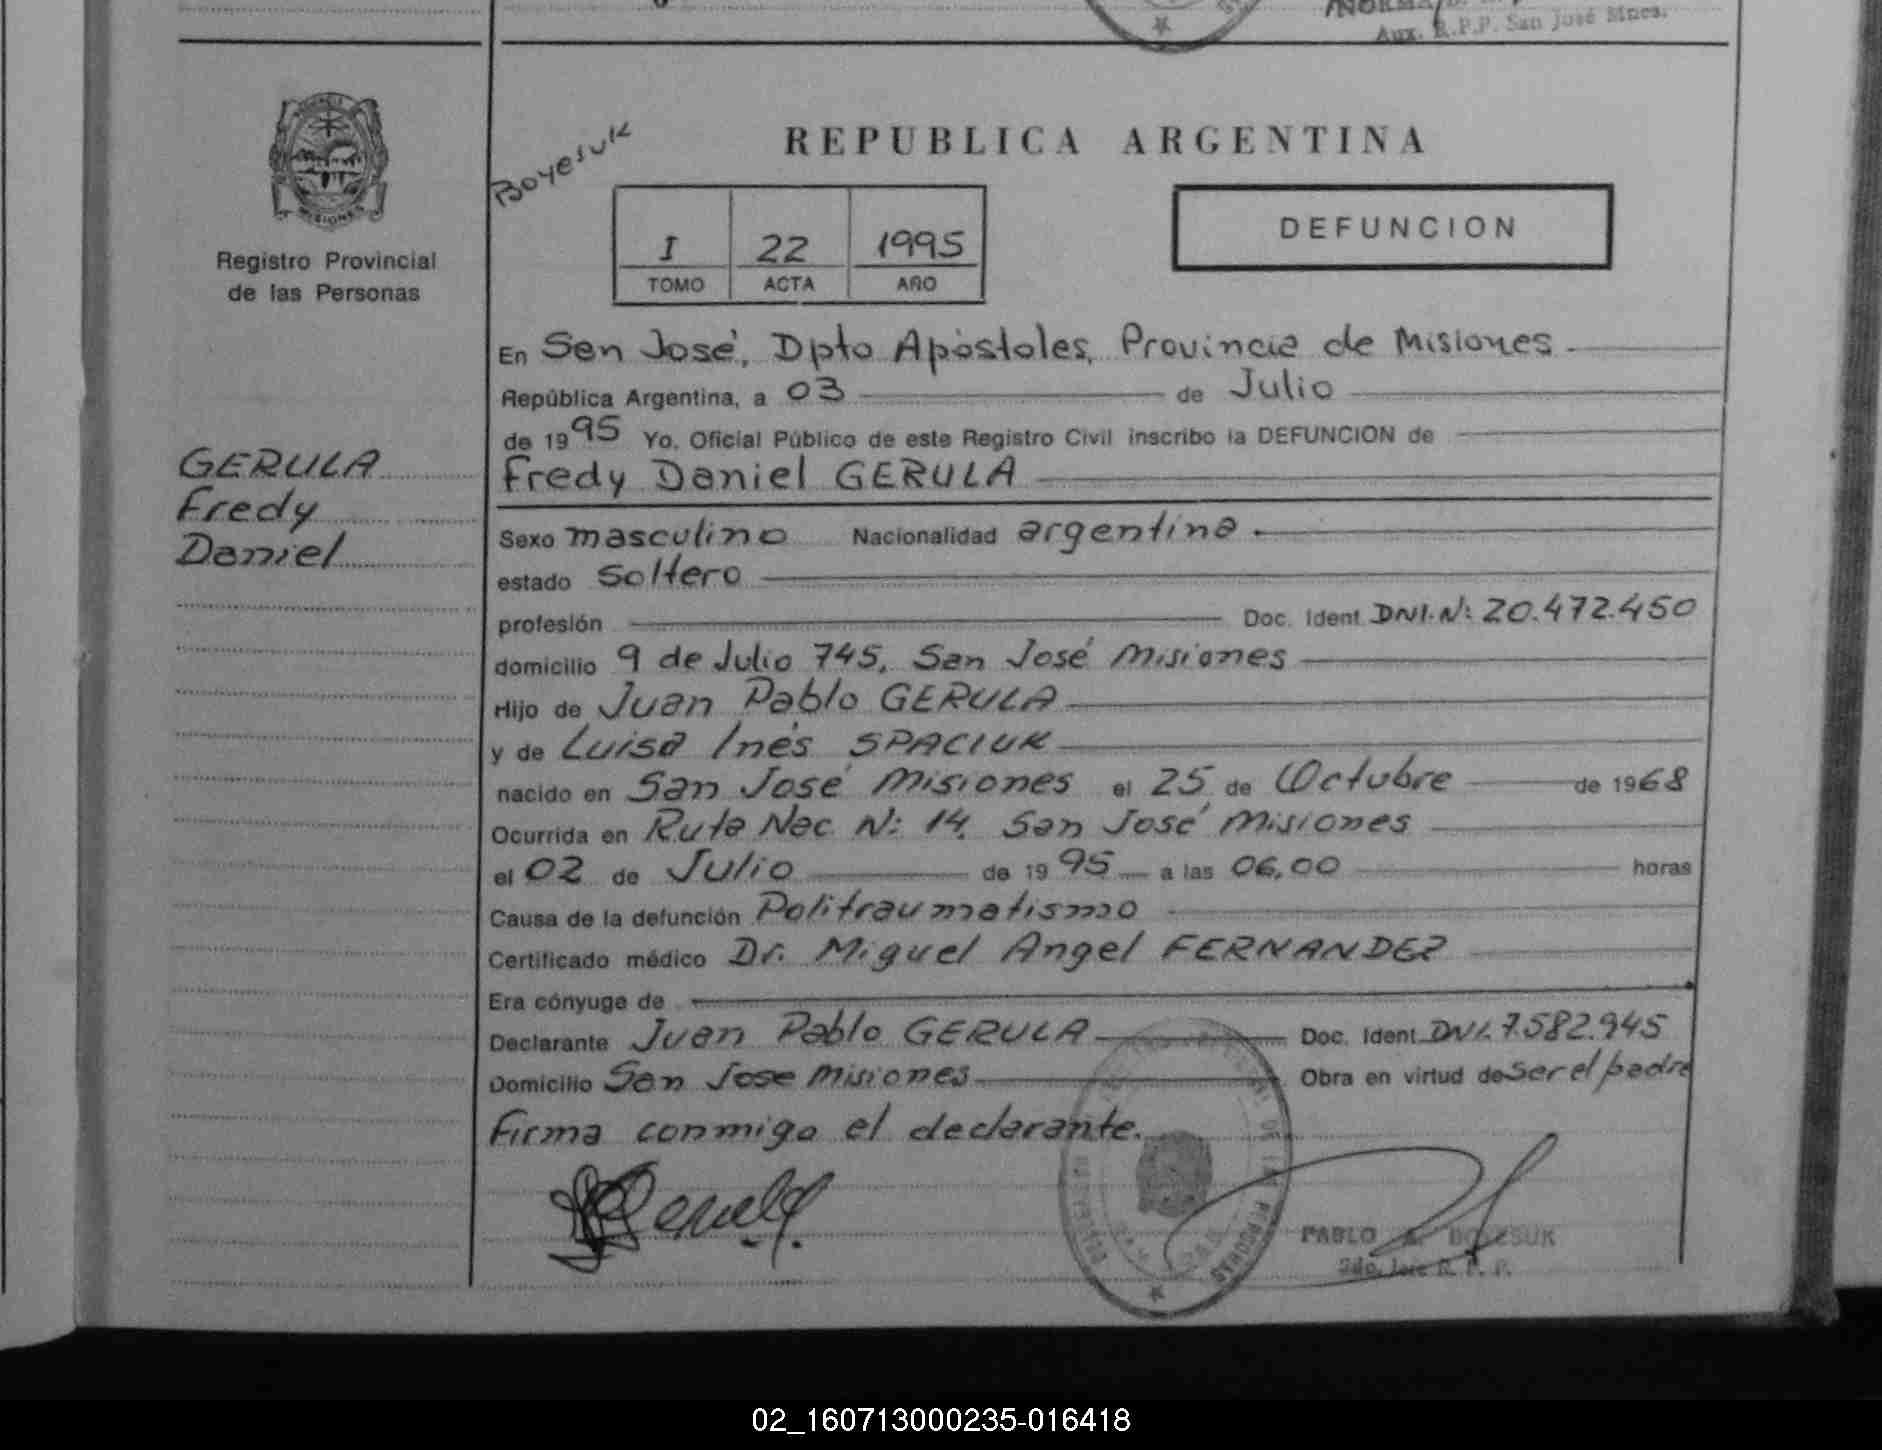 Aux. R.P.P. San José Mnes.
MISIONES
Registro Provincial
de las Personas
GERULA
Fredy
Daniel
Boyesuk
REPUBLICA ARGENTINA
I 22 1995
TOMO ACTA AÑO
DEFUNCION
En San José, Dpto Apóstoles, Provincia de Misiones.
República Argentina, a 03 de Julio
de 1995 Yo. Oficial Público de este Registro Civil inscribo la DEFUNCION de
Fredy Daniel GERULA
Sexo masculino Nacionalidad argentina.
estado soltero
profesión Doc. Ident. DNI.N: 20.472.450
domicilio 9 de Julio 745, San José Misiones
Hijo de Juan Pablo GERULA
y de Luisa Inés SPACIUK
nacido en San José Misiones el 25 de Octubre de 1968
Ocurrida en Ruta Nac. N: 14, San José Misiones
el 02 de Julio de 1995 a las 06,00 horas
Causa de la defunción Politraumatismo
Certificado médico Dr. Miguel Angel FERNANDEZ
Era cónyuge de
Declarante Juan Pablo GERULA Doc. Ident. DNI. 7.582.945
Domicilio San Jose Misiones Obra en virtud de ser el padre
Firma conmigo el declarante.
PABLO A. BOYESUK
R. P. P.
02_160713000235-016418